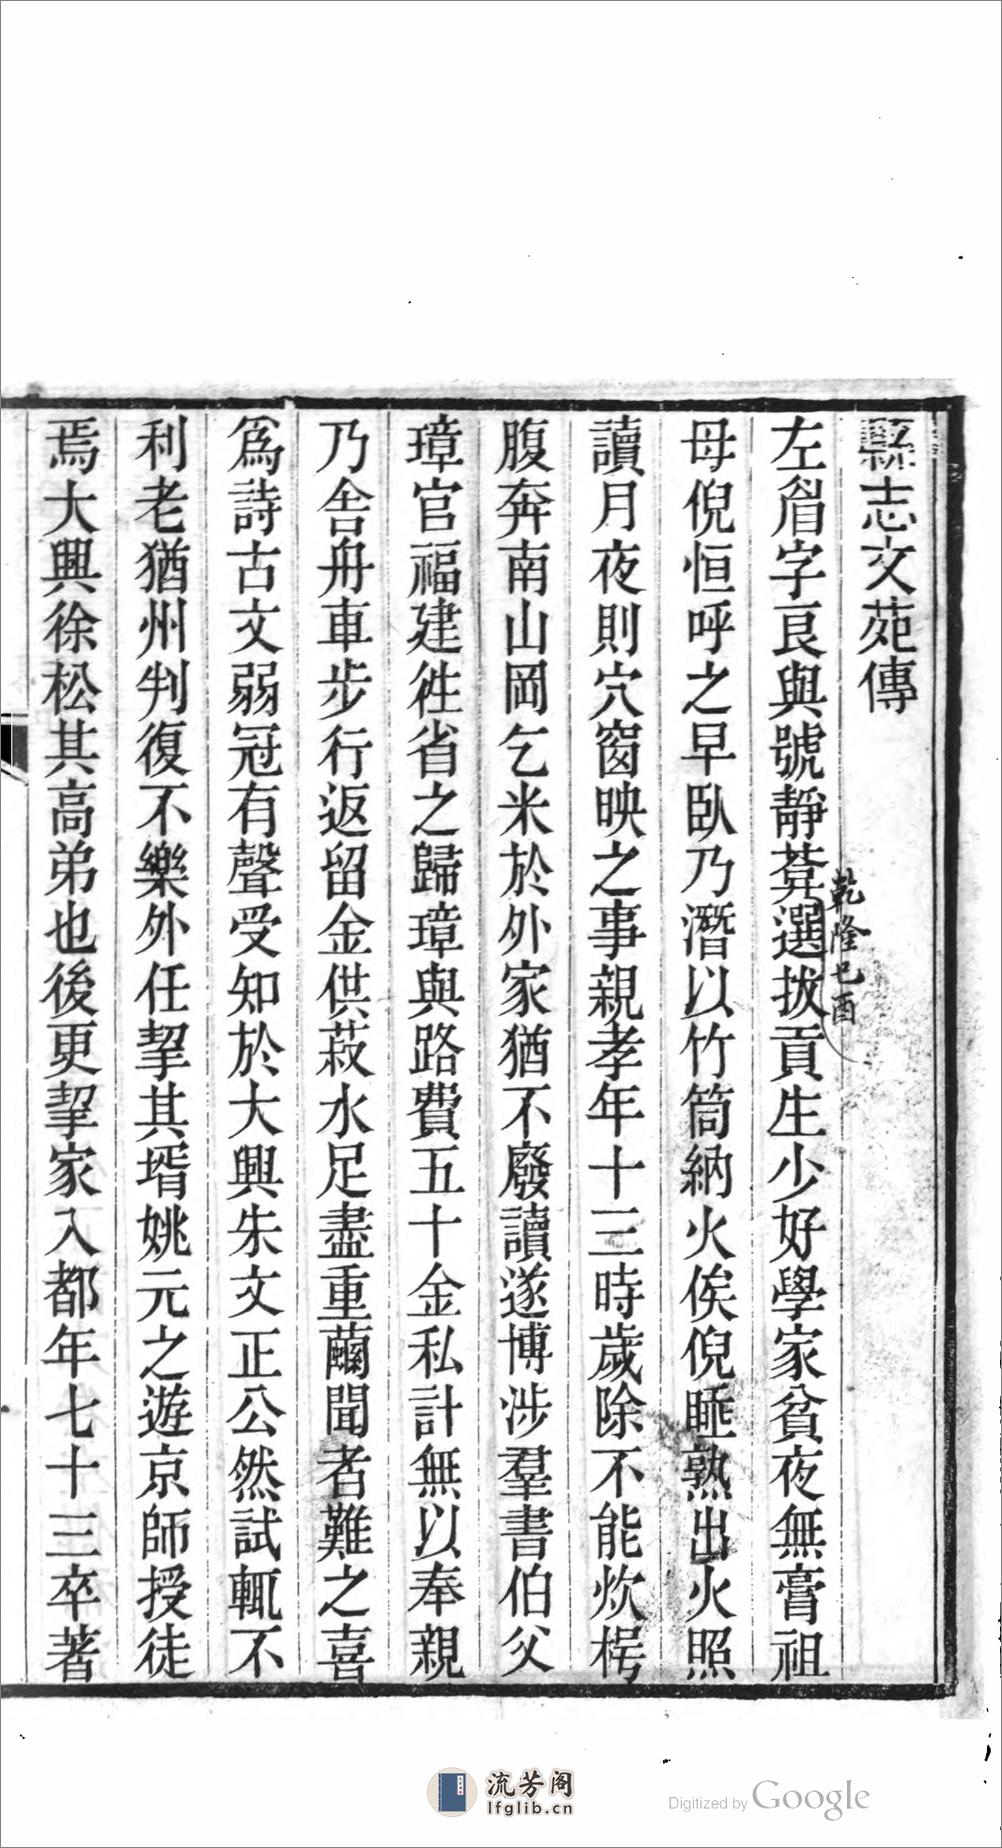 縣志文苑傳
左眉字艮與號靜菴選拔貢生少好學家貧夜無膏祖
乾隆己酉
母倪恒呼之早臥乃潛以竹筒納火俟倪睡熟出火照
讀月夜則穴窗映之事親孝年十三時歲除不能炊枵
腹奔南山岡乞米於外家猶不廢讀遂博涉羣書伯父
璋官福建徃省之歸璋與路費五十金私計無以奉親
乃舍舟車步行返留金供菽水足盡重繭聞者難之喜
爲詩古文弱冠有聲受知於大興朱文正公然試輒不
利老猶州判復不樂外任挈其壻姚元之遊京師授徒
焉大興徐松其高弟也後更挈家入都年七十三卒著
流芳阁
lfglib.cn
Digitized by Google